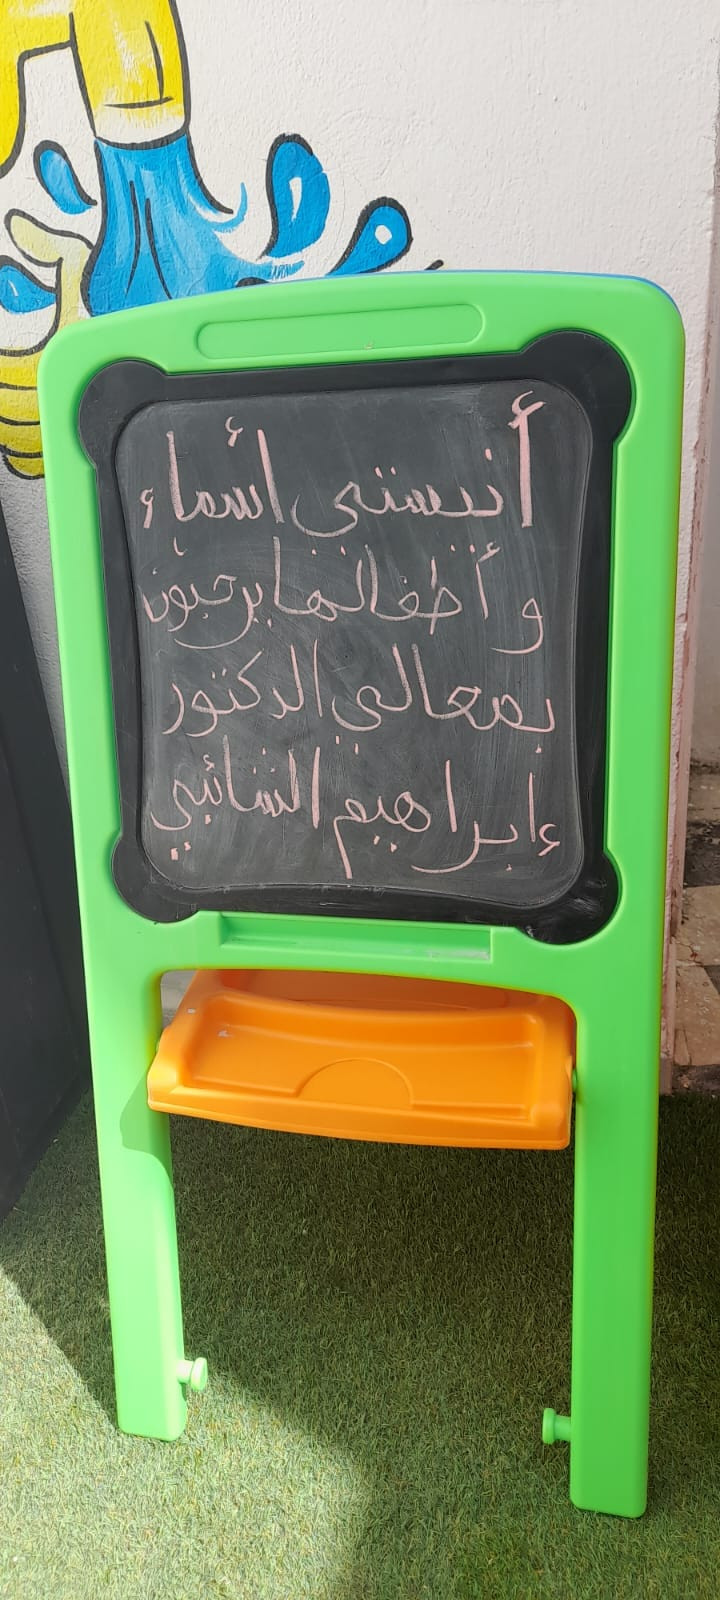 أنيستي أسماء
وأطفالها يرحبون
بمعالي الدكتور
إبراهيم الشائبي